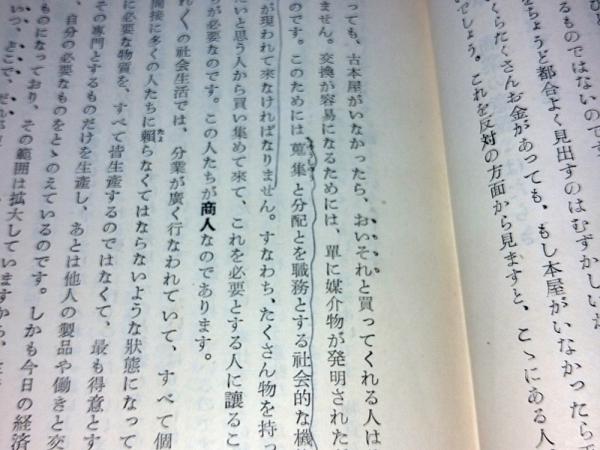 ひと
るものではないのです
をちょうど都合よく見出すのはむずかしいか
くらたくさんお金があっても、もし本屋がいなかったら
でしょう。これを反対の方面から見ますと、こゝにある人
っても、古本屋がいなかったら、おいそれと買ってくれる人は
ません。交換が容易になるためには、單に媒介物が発明されたが
のです。このためには蒐集と分配とを職務とする社会的な機
が現われて来なければなりません。すなわち、たくさん物を持っ
たいと思う人から買い集めて来て、これを必要とする人に讓るこ
ちが必要なのです。この人たちが商人なのであります。
れ〴〵の社会生活では、分業が廣く行なわれていて、すべて個
間接に多くの人たちに頼らなくてはならないような狀態になって
に必要な物質を、すべて皆生産するのではなくて、最も得意とす
その專門とするものだけを生産し、あとは他人の製品や働きと交
、自分の必要なものをとゝのえているのです。しかも今日の経済
ものになっており、その範囲は拡大していますから、
いつ、どこで、